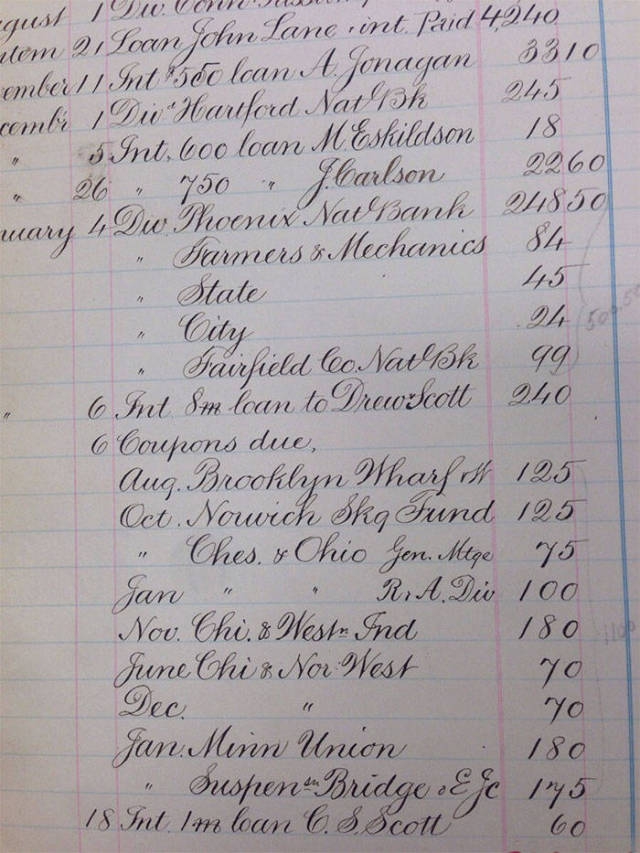 gust 1 Div. Conn.
tem 21 Loan John Lane. int. Paid 4,240
ember 11 Int $550 loan A. Jonagan 33 10
cembr 1 Divd Hartford Natl Bk 245
" 5 Int. 600 loan M. Eskildson 18
" 26 " 750 " J. Carlson 22 60
nuary 4 Div. Phoenix Natl Bank 248 50
" Farmers & Mechanics 84
" State 45
" City 24
" Fairfield Co. Natl Bk 99
" 6 Int 8m loan to Drew & Scott 240
6 Coupons due,
Aug. Brooklyn Wharf & W 125
Oct. Norwich Skg Fund 125
" Ches. & Ohio Gen. Mtge 75
Jan " " R. A. Div 100
Nov. Chi. & Westn Ind 180
June Chi & Nor West 70
Dec. " 70
Jan. Minn Union 180
" Suspensn Bridge & E Jc 175
18 Int. 1m loan C. S. Scott 60